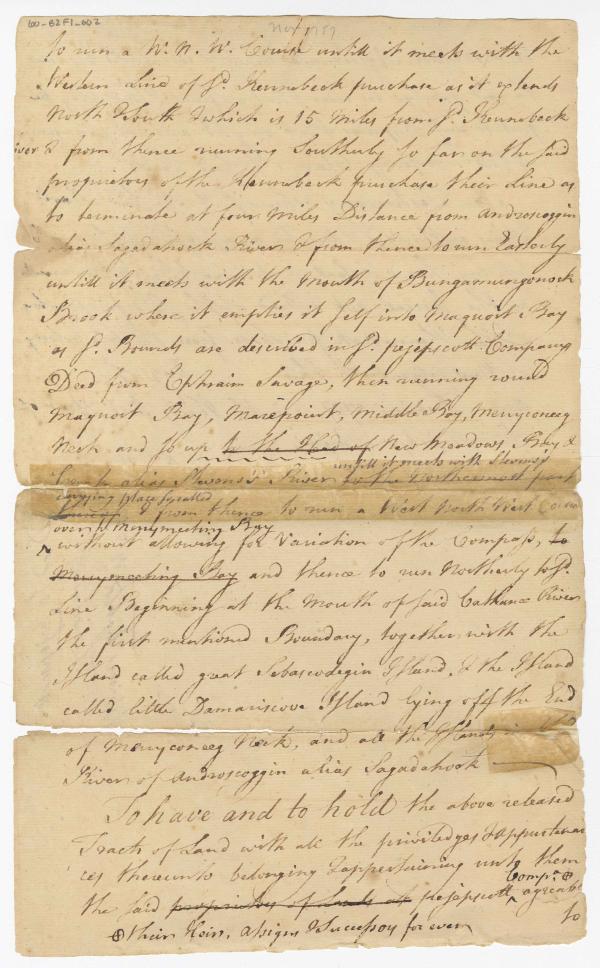 100-B2F1-002
Nov 1757
to run a W. N. W. Course untill it meets with the
Western Line of sd. Kennebeck purchase as it extends
North & South & which is 15 Miles from sd. Kennebeck
River & from thence running Southerly so far on the said
proprietors of the Kennebeck purchase their Line as
to terminate at four Miles Distance from Androscoggin
alias Sagadahock River & from thence to run Easterly
untill it meets with the Mouth of Bungamungonock
Brook where it empties it self into Maquoit Bay
as sd. Bounds are described in sd. pejepscott Company
Deed from Ephraim Savage, then running round
Maquoit Bay, Marepoint, Middle Bay, Merryconeeg
Neck and so up to the Head of New Meadows Bay &
untill it meets with Stevens's
alias Stevens's River to the Northermost part
carrying place so called
thereof & from thence to run a West North West Course
over to Merrymeeting Bay
without allowing for Variation of the Compass, to
Merrymeeting Bay and thence to run Northerly to sd.
Line Beginning at the Mouth of said Cathance River
the first mentioned Boundary, together with the
Island called great Sebascodegin Island, & the Island
called little Damariscove Island lying off the End
of Merryconeeg Neck, and all the Islands in the
River of Androscoggin alias Sagadahock
To have and to hold the above released
Tracts of Land with all the priviledges & appurtenan
ces thereunto belonging & appertaining unto them
Compy. ⊕
the said proprietors of Lands at pejepscott agreable
⊕ their Heirs, assigns & Successors for ever to